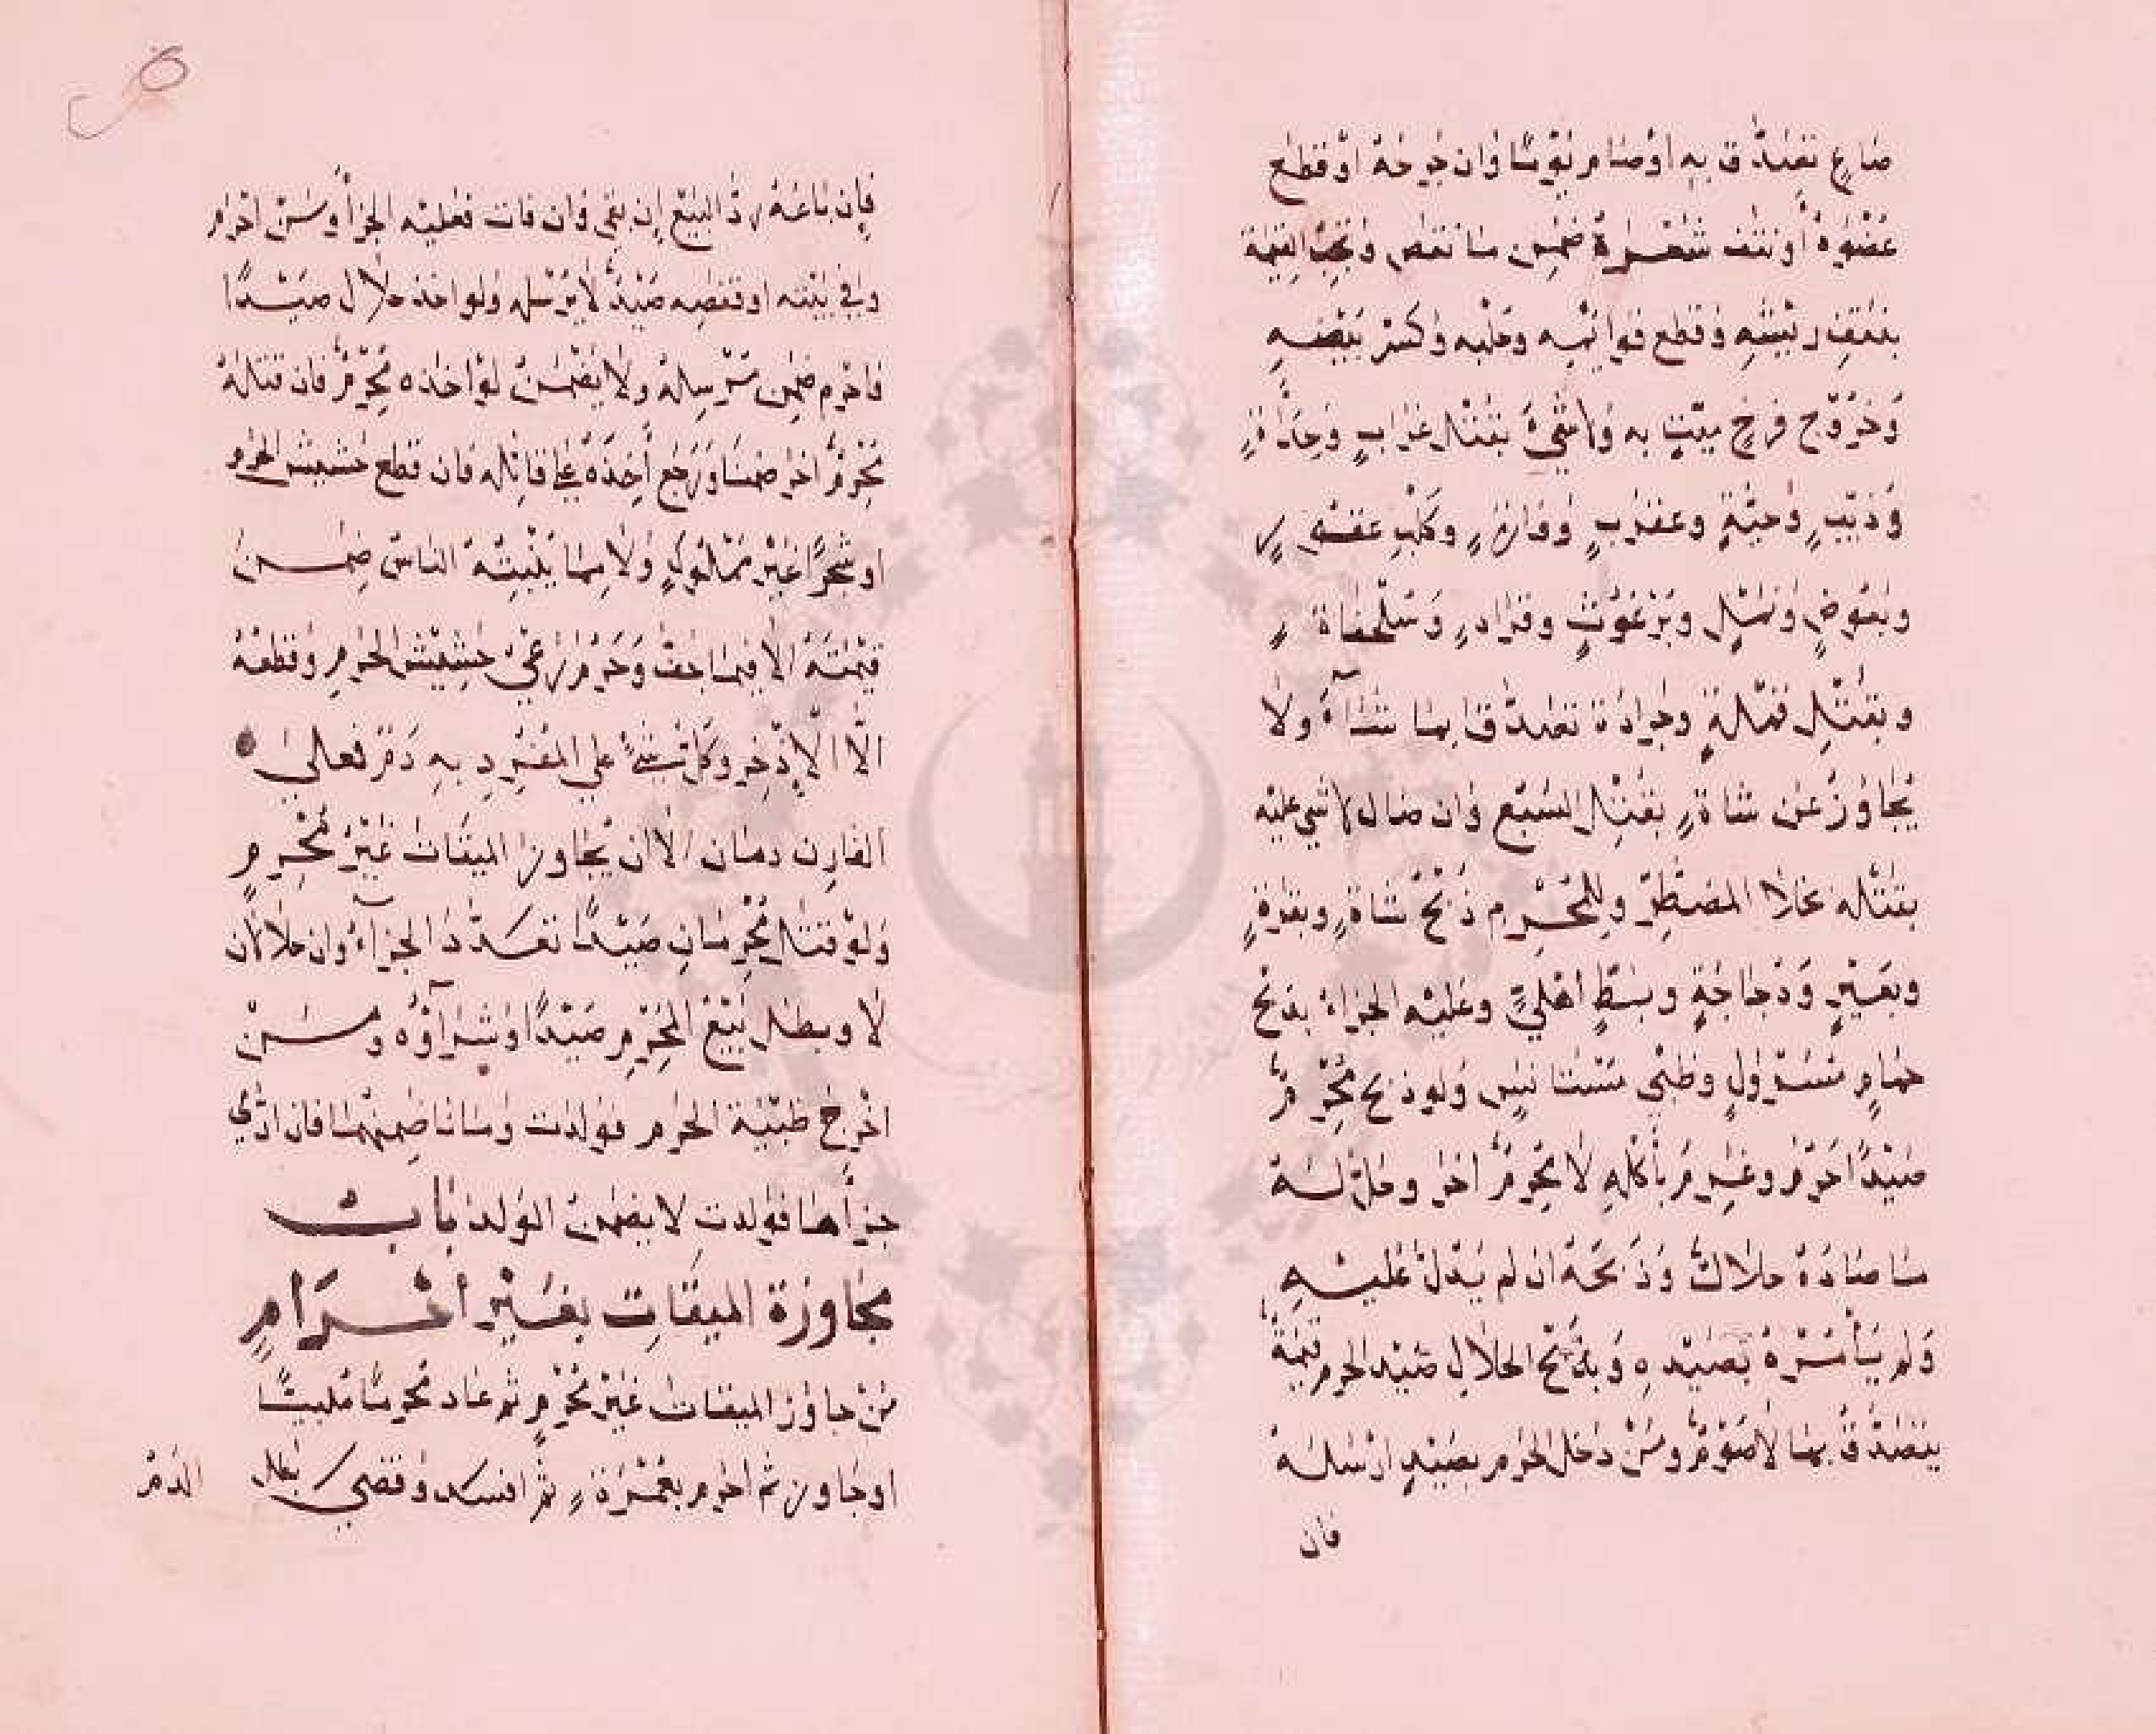 صاع تصدق به او صام يوما وان جرحه او قطع
عضوه أو نتف شعره ضمن ما نقص وتجب القيمة
بنتف ريشه وقطع قوائمه وحلبه وكسر بيضه
وخروج فرخ ميت به ولا شيء بقتل غراب وحدأة
وذئب وحية وعقرب وفارة وكلب عقور
وبعوض ونمل وبرغوث وقراد وسلحفاة
وبقتل قملة وجرادة تصدق بما شاء ولا
يجاوز عن شاة بقتل السبع وان صال لا شي عليه
بقتله بخلاف المضطر وللمحرم ذبح شاة وبقرة
وبعير ودجاجة وبط أهلي وعليه الجزاء بذبح
حمام مسرول وظبي مستانس ولو ذبح محرم
صيدا حرم وغرم بأكله لا محرم اخر وحل له
ما صاده حلال وذبحه ان لم يدل عليه
ولم يأمره بصيده وبذبح الحلال صيد الحرم قيمة
يتصدق بها لا صوم ومن دخل الحرم بصيد ارسله
فان
فإن باعه رد البيع إن بقي وان فات فعليه الجزأ ومن احرم
وفي بيته او قفصه صيد لا يرسله ولو اخذ حلال صيدا
فاحرم ضمن مرسله ولا يضمن لو اخذه محرم فان قتله
محرم اخر ضمنا ورجع أخذه على قاتله فان قطع حشيش الحرم
او شجرا غير مملوك ولا مما ينبته الناس ضمن
قيمته الا فيما جف وحرم رعي حشيش الحرم وقطعه
الا الإذخر وكل شيء علي المفرد به دم فعلي
القارن دمان الا ان يجاوز الميقات غير محرم
ولو قتل محرمان صيدا تعدد الجزآء وان حلالان
لا وبطل بيع المحرم صيدا وشرآؤه ومن
اخرج ظبية الحرم فولدت وماتا ضمنهما فان ادي
جزأها فولدت لا يضمن الولد باب
مجاوزة الميقات بغير أحرام
من جاوز الميقات غير محرم ثم عاد محرما ملبيا
او جاوز ثم احرم بعمرة ثم افسد وقضي بطل الدم